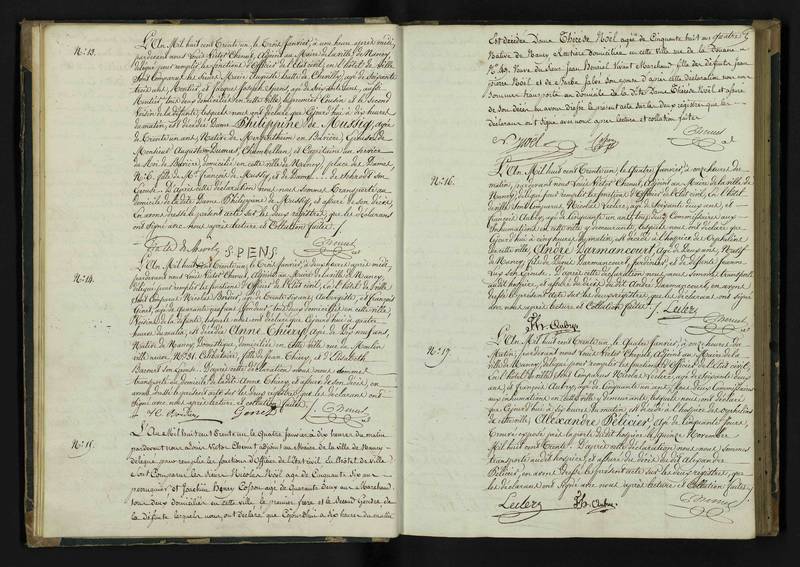 N.° 13.
L'An Mil huit cent Trente un, le Trois Janvier, à une heure après midi,
pardevant nous Louis Victor Chenut, Adjoint au Maire de la ville de Nancy,
délégué pour remplir les fonctions d'Officier de l'Etat civil, en l'hôtel de Ville
Sont comparus les Sieurs Marie Auguste
trois ans, Rentier, et Jacques Joseph Spens, agé de Soixante ans, aussi
Rentier, tous deux domiciliés en cette ville, le premier Cousin et le second
Voisin de la défunte, lesquels nous ont déclaré que Cejourd'hui à dix heures
du matin, est décédée Dame Philippine de Mussig, agée
de Trente un ans, Native de en Bavière, Epouse de
Monsieur Auguste Chambellan, et Capitaine au service
du Roi de Bavière, domiciliée en cette ville de Nancy, place des Dames,
N.° 6, fille de M.r François de Mussig, et de Dame
Epouse. D'après cette déclaration nous nous sommes transporté au
domicile de la dite Dame Philippine de Mussig, et assuré de son décès,
En avons dressé le présent acte sur les deux registres, que les déclarants
ont signé avec nous après lecture et Collation faites.
SPENS Chenut
N.° 14.
L'An Mil huit cent Trente un, le Trois Janvier, à deux heures après midi,
pardevant nous Louis Victor Chenut, Adjoint au Maire de la ville de Nancy,
délégué pour remplir les fonctions d'Officier de l'Etat civil, en l'hôtel de Ville
Sont comparus Nicolas agé de Trente six ans, Aubergiste, et François
agé de Quarante tous deux domiciliés en cette ville
Voisins de la défunte, lesquels nous ont déclaré que Cejourd'hui à quatre
heures du matin, est décédée Anne Thiery, agée de Dix neuf ans,
Native de Nancy, Domestique, domiciliée en cette ville, rue du Moulin
ville neuve N.° 31, Célibataire, fille de Jean Thiery, et d'Elisabeth
son Epouse. D'après cette déclaration nous nous sommes
transporté au domicile de la dite Anne Thiery, et assuré de son décès, en
avons dressé le présent acte sur les deux registres, que les déclarants ont
signé avec nous après lecture et collation faites.
Chenut
N.° 15.
L'An Mil huit cent Trente un le Quatre Janvier à dix heures du matin
pardevant nous Louis Victor Chenut adjoint au Maire de la Ville de Nancy
délégué pour remplir les fonctions d'Officier de l'état civil, En l'hôtel de Ville
sont Comparus les Sieurs Nicolas Noël agé de Cinquante Six ans
perruquier et Joachim Henry agé de Quarante Deux ans Marchand
tous deux domiciliés en cette ville, le premier frère et le second Gendre de
la défunte lesquels nous ont déclaré que Cejourd'hui à dix heures du matin
Est décédée Dame Thérèse Noël agée de Cinquante huit ans quatre
Native de Nancy Rentière domiciliée en cette ville rue de la Douane
N.° Veuve du Sieur Jean Vivant Marchand fille des défunts Jean
Pierre Noël et de son Epouse d'après cette déclaration nous nous
sommes transporté au domicile de la dite Dame Thérèse Noël et assuré
de son décès lui avons dressé le présent acte sur les deux registres que les
déclarants ont signé avec nous après lecture et collation faites
Noël Chenut
N.° 16.
L'An Mil huit cent Trente un, le Quatre Janvier, à onze heures du
matin, pardevant nous Louis Victor Chenut, Adjoint au Maire de la ville de
Nancy, délégué pour remplir les fonctions d'Officier de l'Etat civil, en l'hôtel
de ville Sont comparus Nicolas Leclerc, agé de Soixante deux ans, et
François Aubry, agé de Cinquante un ans, tous deux Commissaires aux
Inhumations en cette ville y demeurants, lesquels nous ont déclaré que
Cejourd'hui à cinq heures du matin, est décédé à l'hospice des Orphelins
de cette ville, André Darmancourt, agé de ans, Natif
de Nancy, fils de Darmancourt, et de défunte Jeanne
son Epouse. D'après cette déclaration nous nous sommes transporté
au dit hospice, et assuré du décès du dit André Darmancourt, en avons
dressé le présent acte sur les deux registres, que les déclarants ont signé
avec nous après lecture et Collation faites. Leclerc
Aubry Chenut
N.° 17.
L'An Mil huit cent Trente un, le Quatre Janvier, à onze heures du
Matin, pardevant nous Louis Victor Chenut, Adjoint au Maire de la
ville de Nancy, délégué pour remplir les fonctions d'Officier de l'Etat civil,
En l'hôtel de ville, Sont comparus Nicolas Leclerc, agé de Soixante deux
ans, et François Aubry, agé de Cinquante un ans, tous deux Commissaires
aux inhumations en cette ville y demeurants, lesquels nous ont déclaré
que Cejourd'hui à dix heures du matin, est décédé à l'hospice des Orphelins
de cette ville, Alexandre Pélicier, agé de Cinquante jours,
Trouvé exposé près la porte du dit hospice le quinze Novembre
Mil huit cent Trente. D'après cette déclaration nous nous sommes
transporté au dit hospice, et assuré du décès du dit Alexandre
Pélicier, en avons dressé le présent acte sur les deux registres, que
les déclarants ont signé avec nous après lecture et Collation faites.
Leclerc Aubry Chenut